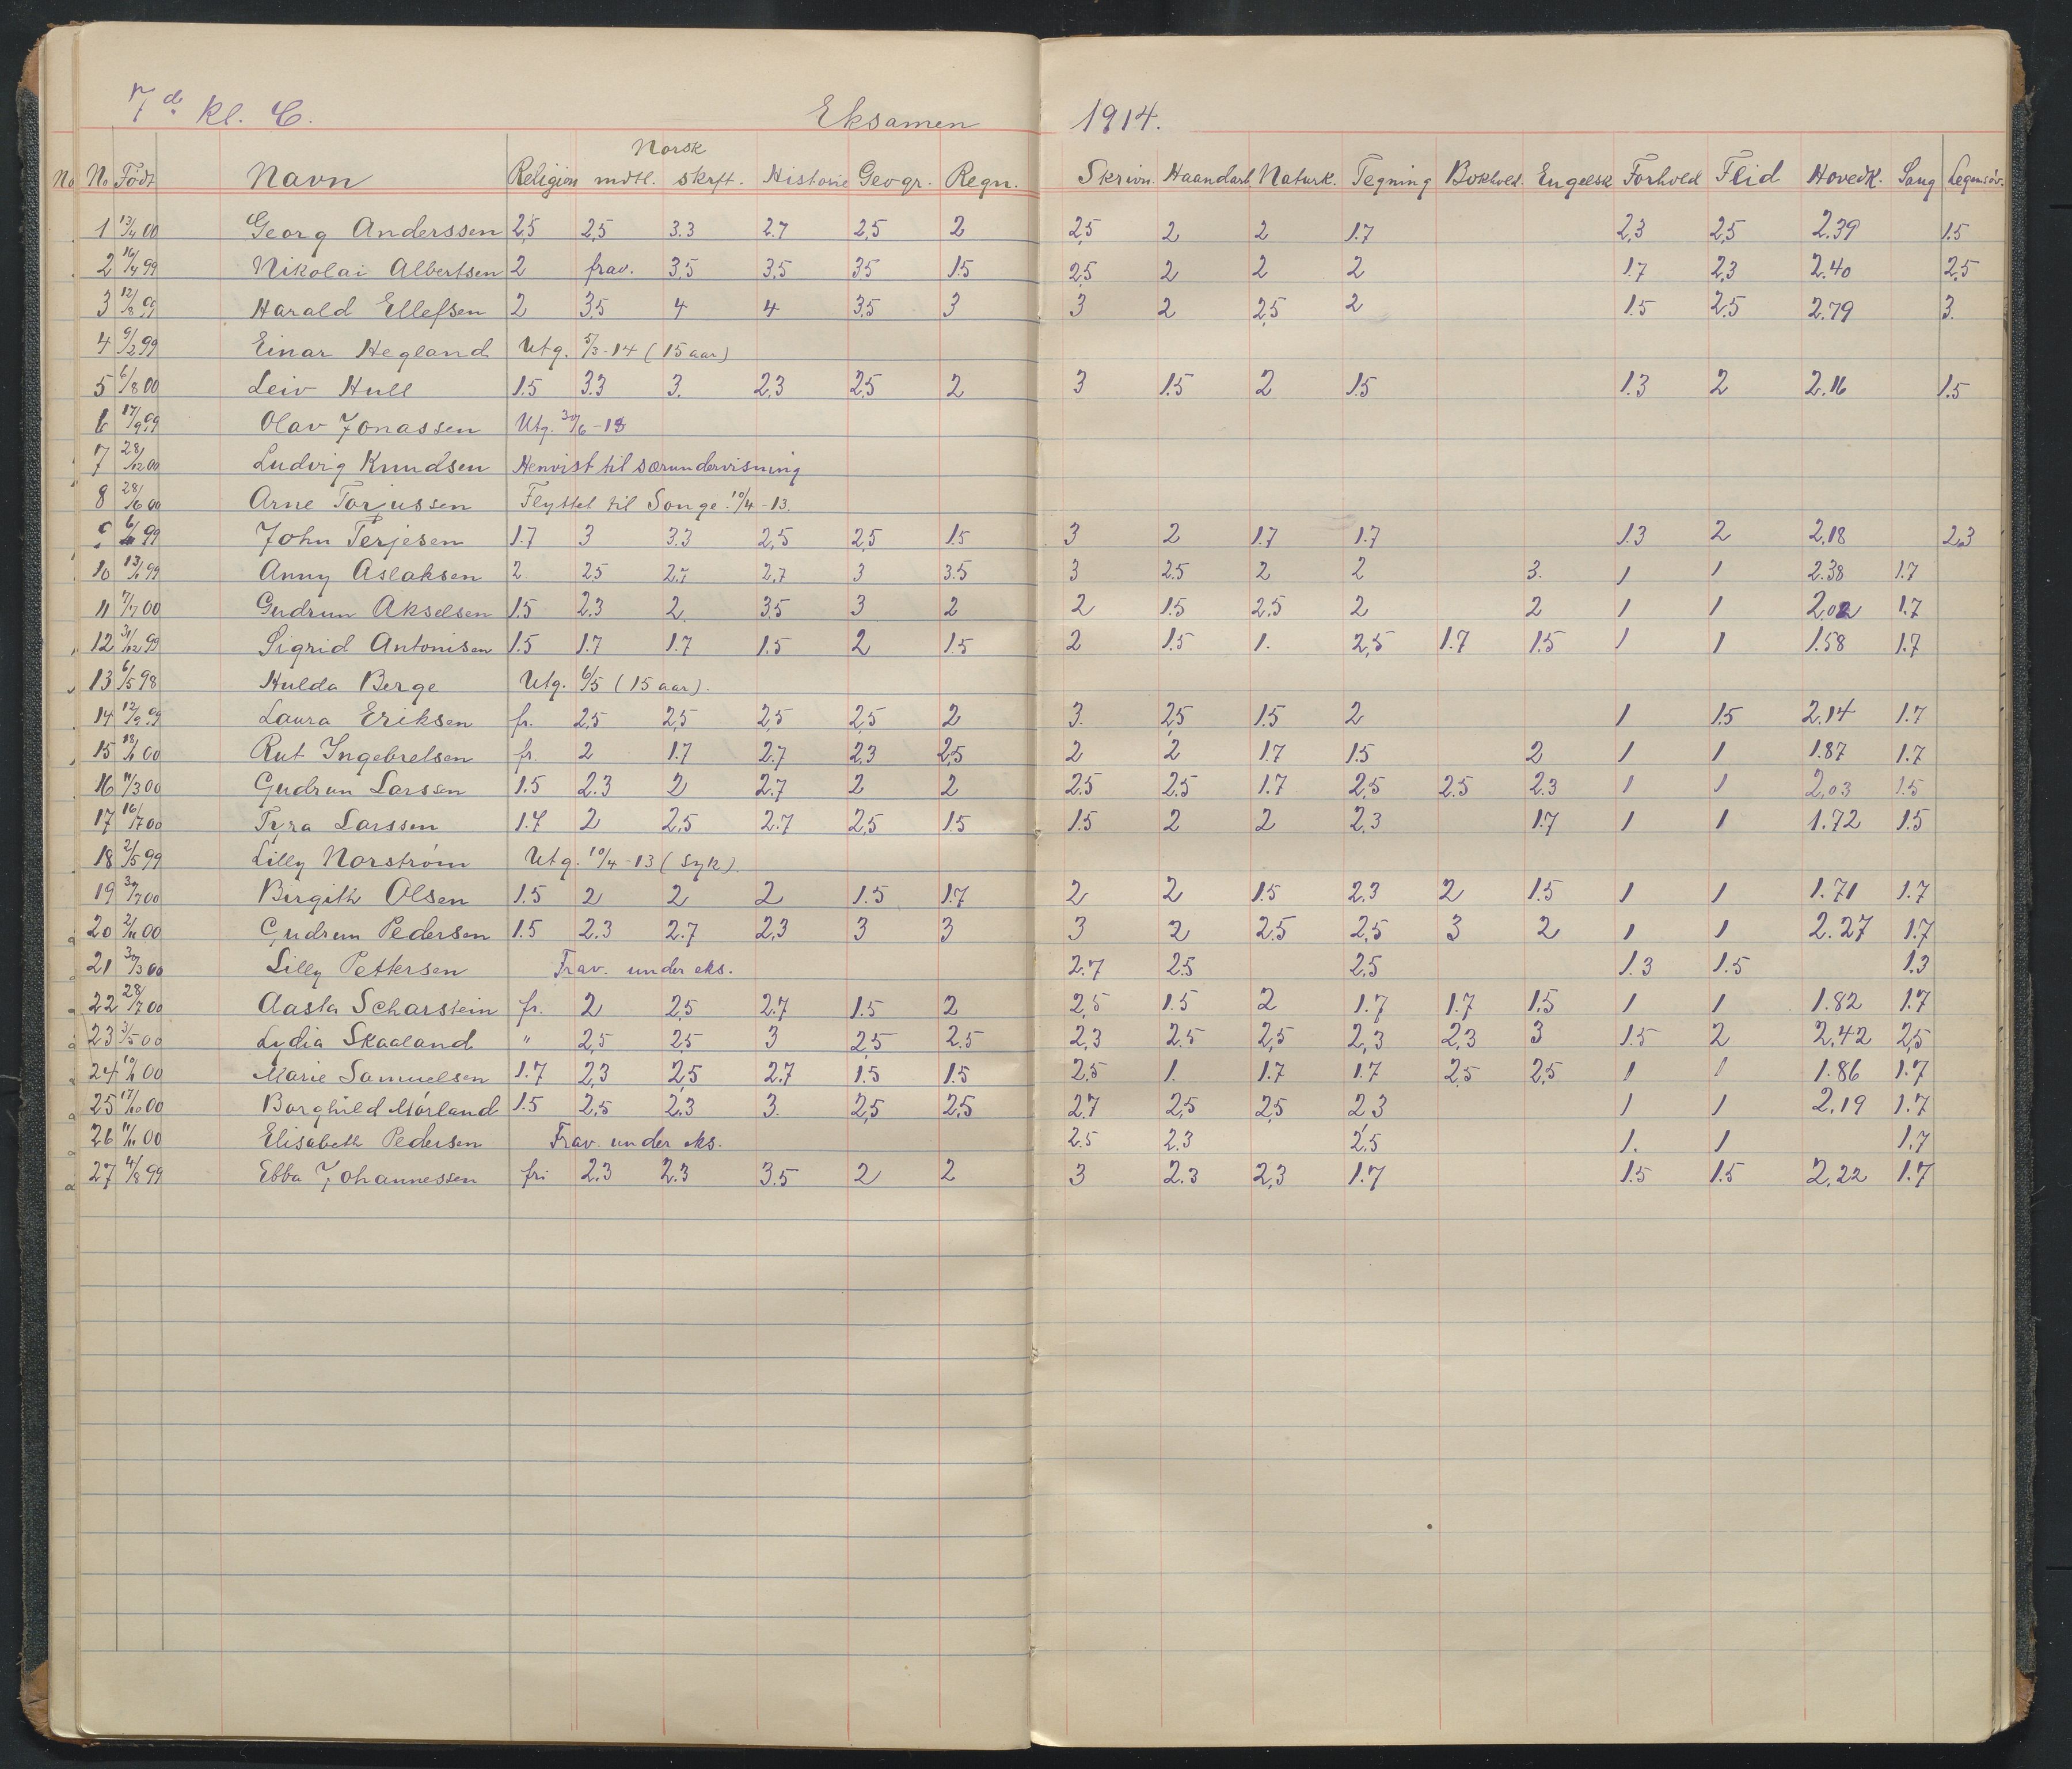 7de Kl. C. Eksamen 1914.
Norsk
No No Födt Navn Religion mdtl. skrft. Historie Geogr. Regn. Skrivn. Haandarb. Naturk. Tegning Bokhold. Engelsk Forhold Flid Hovedk. Sang Legemsöv.
1 13/4 00 Georg Anderssen 2,5 2,5 3.3 2.7 2,5 2 2,5 2 2 1.7 2,3 2,5 2.39 1.5
2 16/4 99 Nikolai Albertsen 2 frav. 3,5 3,5 3,5 1.5 2,5 2 2 2 1.7 2,3 2.40 2,5
3 12/8 99 Harald Ellefsen 2 3.5 4 4 3,5 3 3 2 2,5 2 1.5 2.5 2.79 3.
4 9/2 99 Einar Hegland Utg. 5/3-14 (15 aar)
5 6/8 00 Leiv Hull 1.5 3.3 3. 2,3 2,5 2 3 1.5 2 1.5 1.3 2 2.16 1.5
6 17/9 99 Olav Jonassen Utg. 30/6-13
7 28/12 00 Ludvig Knudsen Henvist til særundervisning
8 28/6 00 Arne Torjussen Flyttet til Songe. 10/4-13.
9 99 John Terjesen 1.7 3 3.3 2,5 2,5 1.5 3 2 1.7 1.7 1.3 2 2,18 2,3
10 99 Anny Aslaksen 2. 2.5 2.7 2,7 3 3.5 3 2.5 2 2 3. 1 1 2.38 1.7
11 7/7 00 Gudrun Akselsen 1.5 2.3 2. 3.5 3 2 2 1.5 2.5 2 2 1 1 2,02 1.7
12 31/12 99 Sigrid Antonisen 1.5 1.7 1.7 1.5 2 1.5 2 1.5 1. 2,5 1.7 1.5 1 1 1.58 1.7
13 6/5 98 Hulda Berge Utg. 6/5 (15 aar).
14 12/9 99 Laura Eriksen fr. 2,5 2,5 2,5 2,5 2 3. 2,5 1.5 2 1 1.5 2.14 1.7
15 00 Rut Ingebretsen fr. 2 1.7 2.7 2.3 2,5 2 2 1.7 1.5 2 1 1 1.87 1.7
16 11/3 00 Gudrun Larssen 1.5 2.3 2 2.7 2 2 2.5 2.5 1.7 2,5 2.5 2.3 1 1 2,03 1.5
17 16/7 00 Tyra Larssen 1.7 2 2.5 2.7 2,5 1.5 1.5 2 2 2.3 1.7 1 1 1.72 1.5
18 2/5 99 Lilly Norström Utg. 10/4-13 (syk).
19 30/7 00 Birgith Olsen 1.5 2 2 2 1.5 1.7 2 2 1.5 2,3 2 1.5 1 1 1.71 1.7
20 2/11 00 Gudrun Pedersen 1.5 2.3 2.7 2,3 3 3 3 2 2.5 2,5 3 2 1 1 2.27 1.7
21 30/3 00 Lilly Pettersen Frav. under eks. 2.7 2.5 2.5 1.3 1.5 1.3
22 28/7 00 Aasta Scharstein fr. 2 2,5 2.7 1.5 2 2,5 1.5 2 1.7 1.7 1.5 1 1 1.82 1.7
23 3/5 00 Lydia Skaaland " 2,5 2.5 3 2,5 2.5 2,3 2.5 2,5 2,3 2,3 3 1.5 2 2,42 2,5
24 00 Marie Samuelsen 1.7 2,3 2,5 2.7 1.5 1.5 2,5 1. 1.7 1.7 2,5 2,5 1 1 1.86 1.7
25 17/10 00 Borghild Mörland 1.5 2.5 2.3 3. 2,5 2,5 2.7 2,5 2,5 2 3 1 1 2,19 1.7
26 11/11 00 Elisabeth Pedersen Frav. under eks. 2.5 2.3 2.5 1. 1 1.7
27 4/8 99 Ebba Johannessen fri 2.3 2.3 3.5 2 2 3 2.3 2,3 1.7 1.5 1.5 2,22 1.7